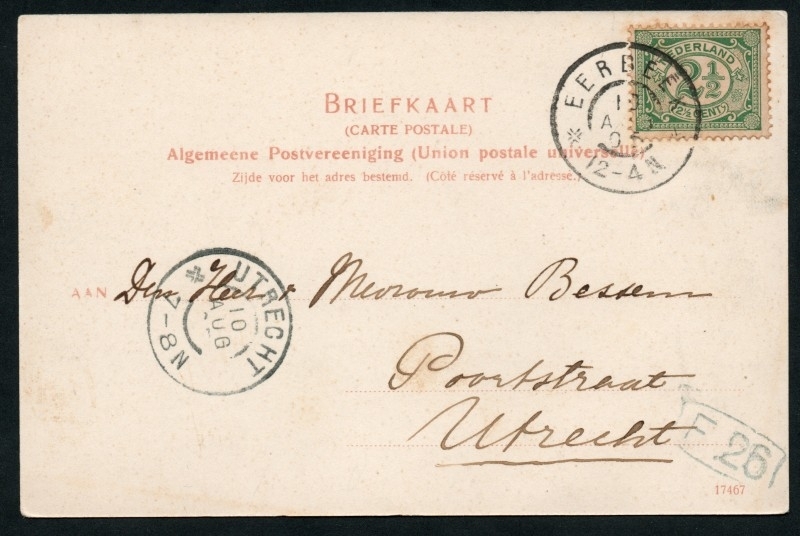 NEDERLAND
2½
(2½ CENT)
EERBEEK
12-4N
BRIEFKAART
(CARTE POSTALE)
Algemeene Postvereeniging (Union postale universelle)
Zijde voor het adres bestemd. (Côté réservé à l'adresse.)
UTRECHT
10
AUG
7-8N
AAN Den Heer & Mevrouw Bessem
Poortstraat
Utrecht
F 26
17467